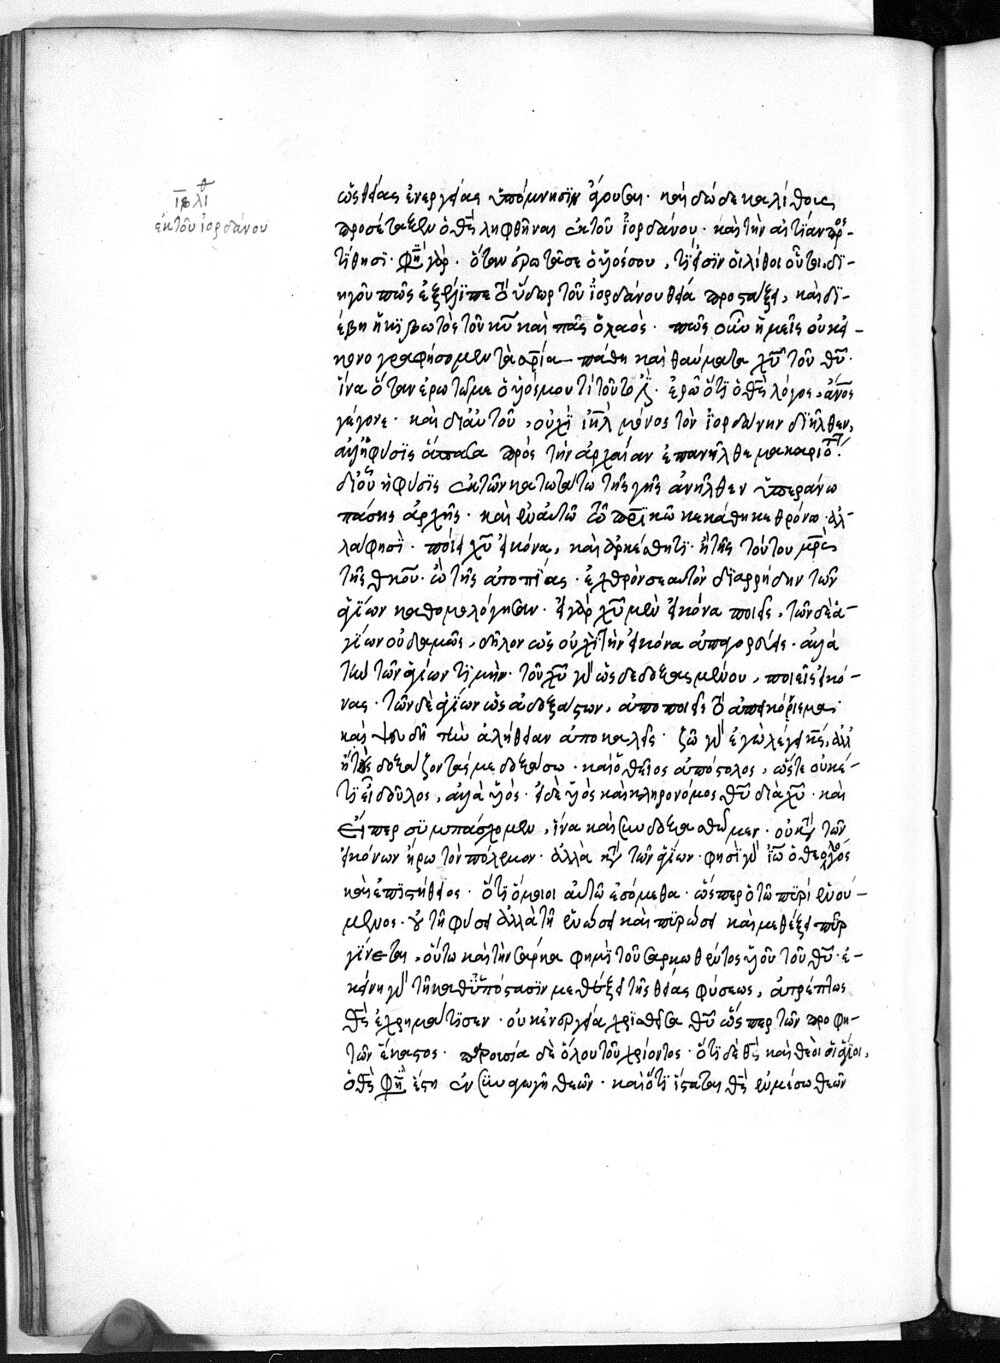 ιβ λιθ
ἐκ τοῦ ἰορδάνου
ὡς θείας ἐνεργείας ὑπόμνησιν φέρουσαι· καὶ δώδεκα λίθους
προσέταξεν ὁ θς ληφθῆναι ἐκ τοῦ ἰορδάνου· καὶ τὴν αἰτίαν προσ-
τίθησι· φη γὰρ· ὅταν ἐρωτᾶ σε ὁ υἱός σου, τί εἰσὶν οἱ λίθοι οὗτοι, δι-
ηγοῦ πῶς ἐξέλιπε τὸ ὕδωρ τοῦ ἰορδάνου θεία προστάξει, καὶ δι-
έβη ἡ κιβωτὸς τοῦ κυ καὶ πᾶς ὁ λαός· πῶς οὖν ἡμεῖς οὐκ εἰ-
κονογραφήσομεν τὰ σρία πάθη καὶ θαύματα χυ τοῦ θυ·
ἵνα ὅταν ἐρωτᾶ με ὁ υἱός μου τί τοῦτό ἐστι· ἐρῶ ὅτι ὁ θς λόγος, ανος
γέγονε· καὶ δι' αὐτοῦ, οὐχὶ ιηλ μόνος τὸν ἰορδάνην διῆλθεν,
ἀλλ' ἡ φύσις ἅπασα πρὸς τὴν ἀρχαίαν ἐπανῆλθε μακαριότητα·
δι' οὗ ἡ φύσις ἐκ τῶν κατωτάτω τῆς γῆς ἀνῆλθεν ὑπεράνω
πάσης ἀρχῆς· καὶ ἐν αὐτῶ τῶ πρικῶ κεκάθηκε θρόνω· ἀλ-
λά φησι· ποίει χυ εἰκόνα, καὶ ἀρκέσθητι· ἢ τῆς τούτου μρς
τῆς θκου· ὢ τῆς ἀτοπίας· ἐχθρόν σε αὐτὸν διαρρήδην τῶν
ἁγίων καθομολόγησας· εἰ γὰρ χυ μὲν εἰκόνα ποιεῖς, τῶν δὲ ἁ-
γίων οὐδαμῶς, δῆλον ὡς οὐχὶ τὴν εἰκόνα ἀπαγορεύεις· ἀλλὰ
τὴν τῶν ἁγίων τιμήν· τοῦ χυ γὰρ ὡς δεδοξασμένου, ποιεῖς εἰκό-
νας· τῶν δὲ ἁγίων ὡς ἀδοξάστων, ἀποποιεῖς τὸ ἀπεικόνισμα·
καὶ ψευδῆ τὴν ἀλήθειαν ἀποκαλεῖς· ζῶ γὰρ ἐγὼ λέγει κς, ἀλλ'
ἢ τοὺς δοξάζοντάς με δοξάσω· καὶ ὁ θεῖος ἀπόστολος, ὥστε οὐκέ-
τι εἶ δοῦλος, ἀλλὰ υἱός· εἰ δὲ υἱὸς καὶ κληρονόμος θυ διὰ χυ· καὶ
εἴπερ συμπάσχομεν, ἵνα καὶ συνδοξασθῶμεν· οὐ κατὰ τῶν
εἰκόνων ἤρω τὸν πόλεμον· ἀλλὰ κατὰ τῶν ἁγίων· φησὶ γὰρ ἰω ὁ θεολόγος
καὶ ἐπιστήθιος· ὅτι ὅμοιοι αὐτῶ ἐσόμεθα· ὥσπερ ὁ τῶ πυρὶ ἑνού-
μενος· οὐ τῆ φύσει ἀλλὰ τῆ ἑνώσει καὶ πυρώσει καὶ μεθέξει πῦρ
γίνεται, οὕτω καὶ τὴν σάρκα φημὶ τοῦ σαρκωθέντος υἱοῦ τοῦ θυ· ἐ-
κείνη γὰρ τῆ καθ' ὑπόστασιν μεθέξει τῆς θείας φύσεως, ἀτρέπτως
θς ἐχρημάτισεν· οὐκ ἐνεργεία χρισθεῖσα θυ ὥσπερ τῶν προφη-
τῶν ἕκαστος· παρουσία δὲ ὅλου τοῦ χρίοντος· ὅτι δὲ θς καὶ θεοὶ οἱ ἅγιοι,
ὁ θς φη ἔστη ἐν συναγωγῆ θεῶν· καὶ ὅτι ἵσταται θς ἐν μέσω θεῶν